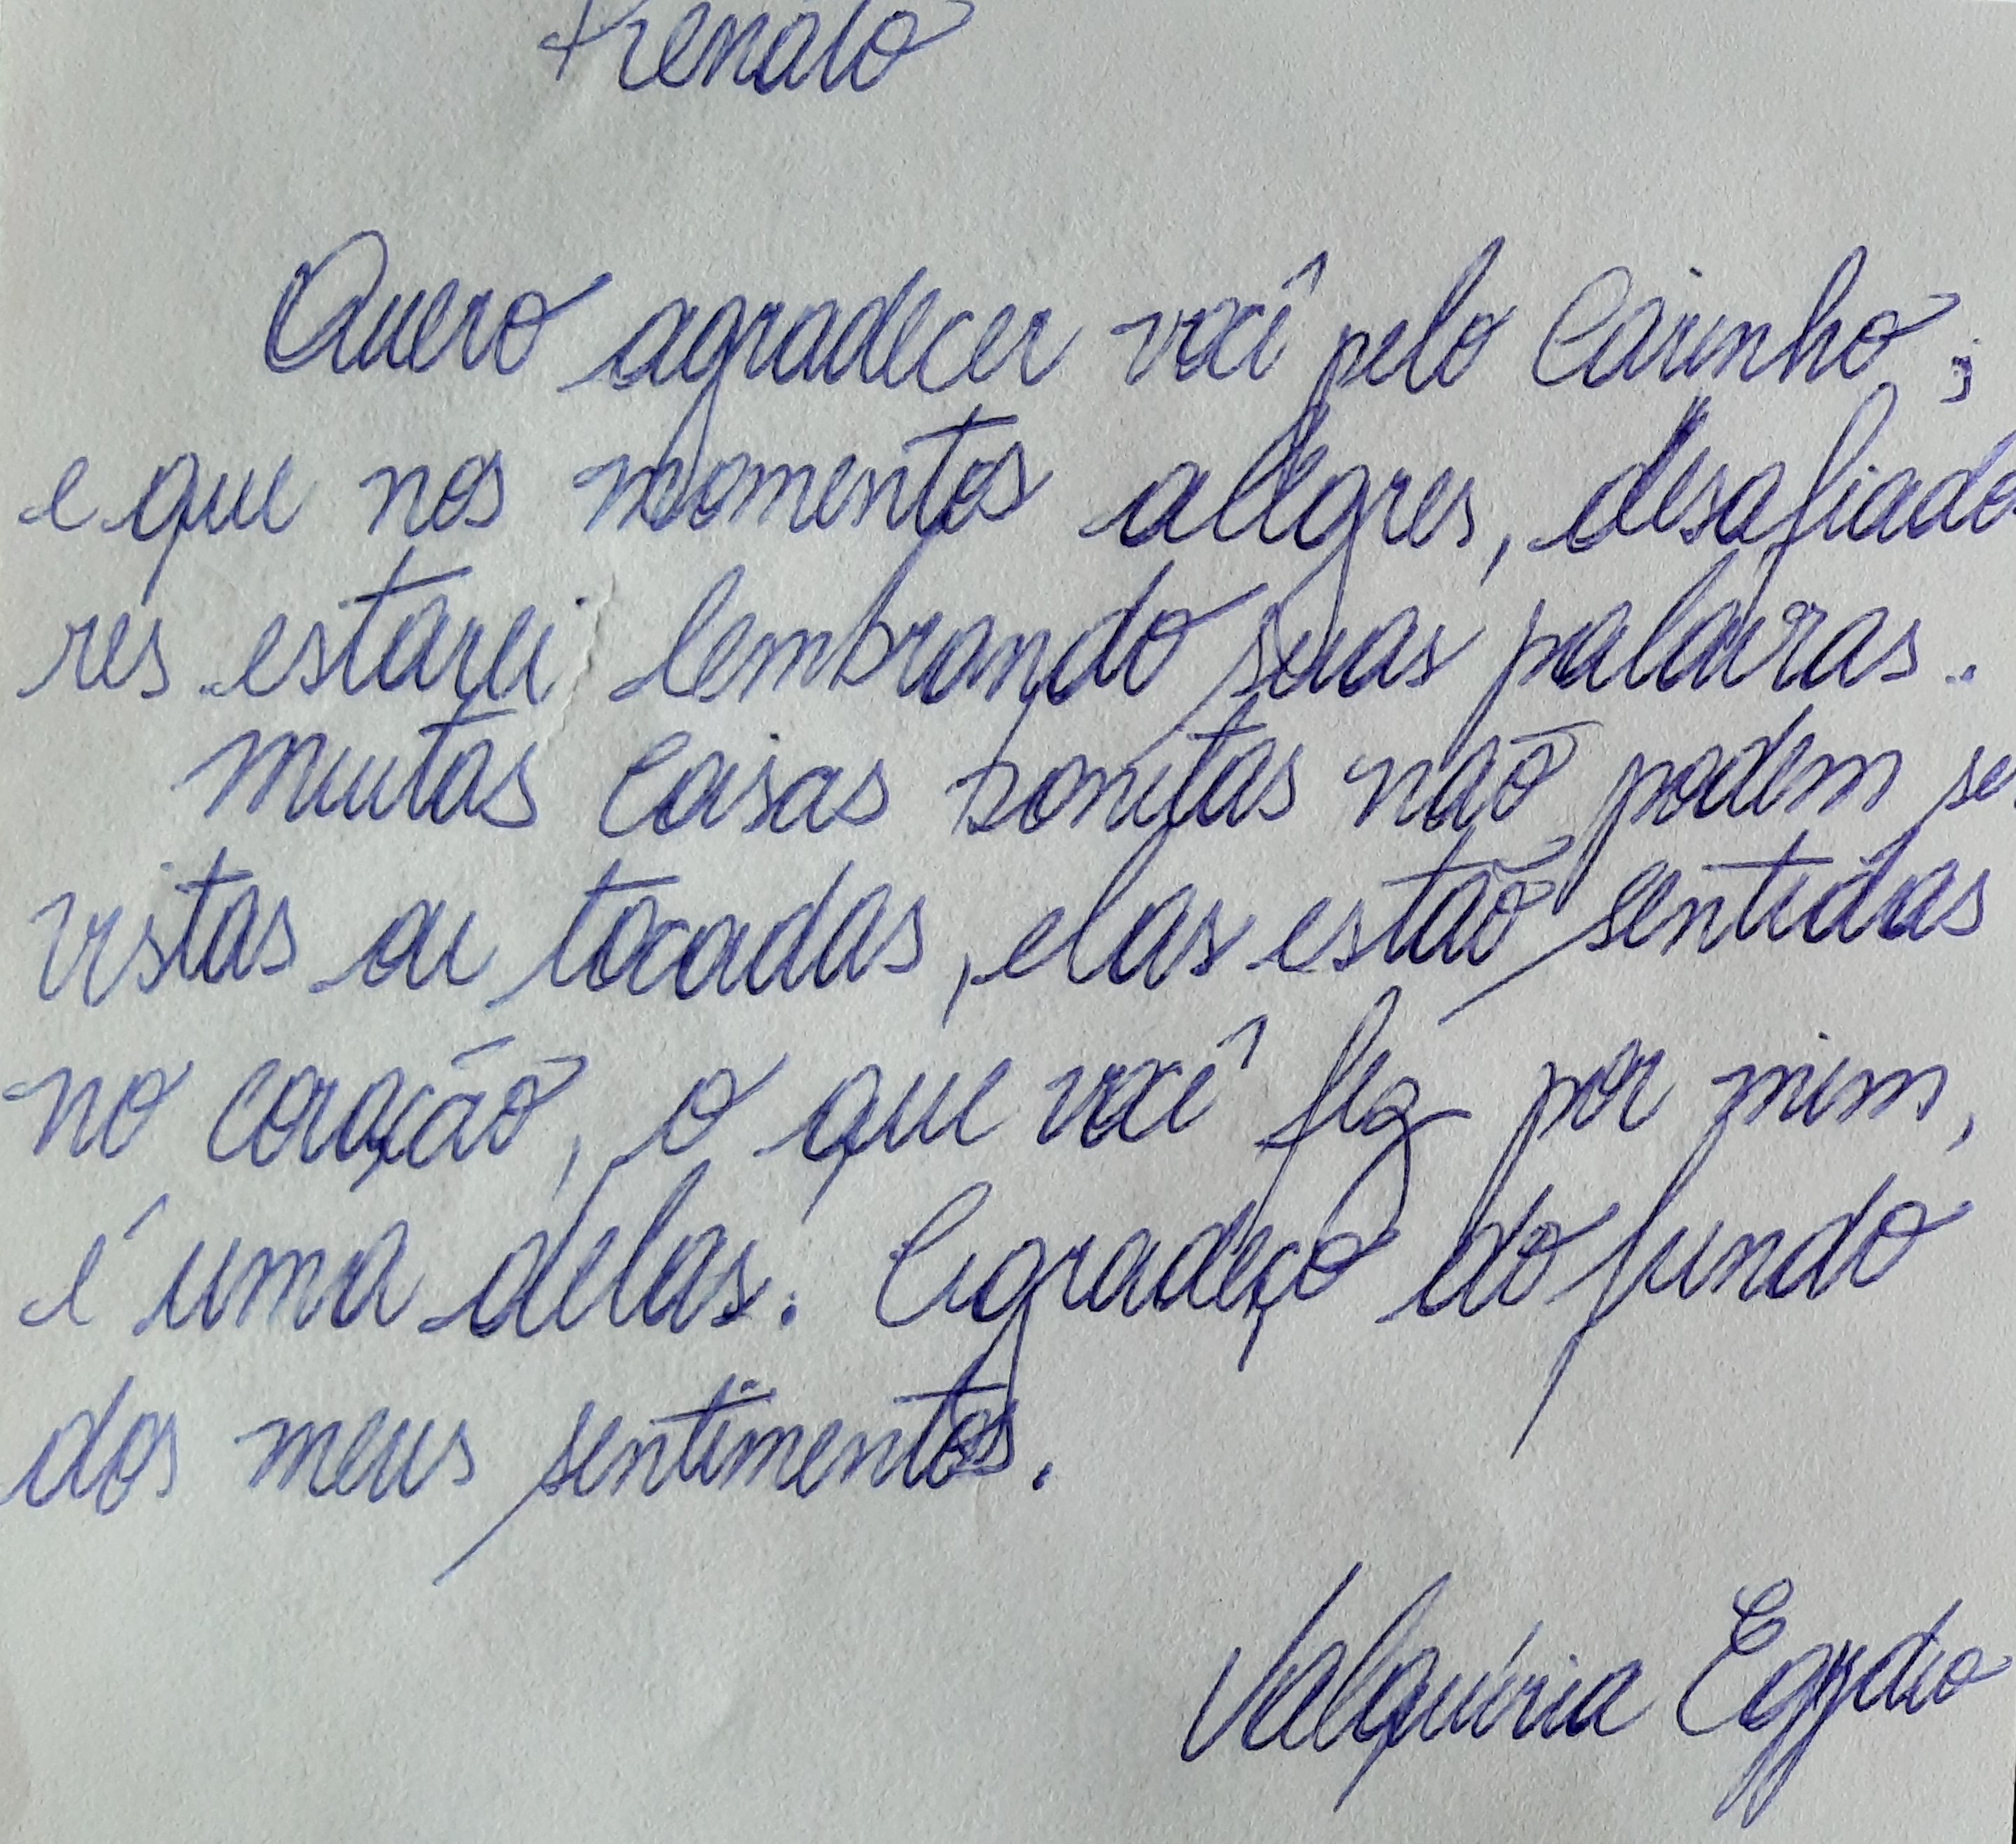 Renato
Quero agradecer você pelo Carinho;
e que nos momentos alegres, desafiado
res estarei lembrando suas palavras.
Muitas Coisas bonitas não podem se
vistas ou tocadas, elas estão sentidas
no coração, o que você fez por mim,
é uma delas! Agradeço do fundo
dos meus sentimentos.
Valquíria Egydio